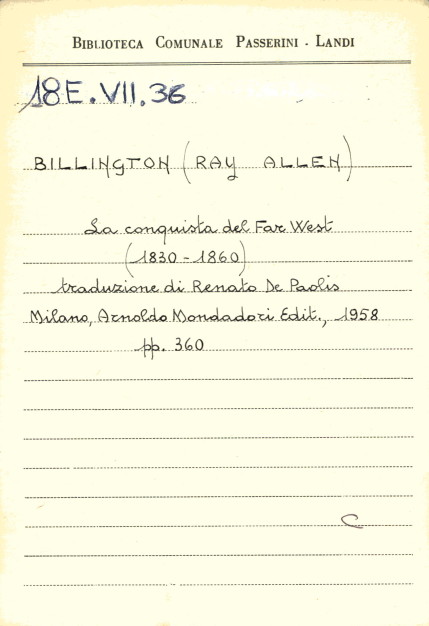 BIBLIOTECA COMUNALE PASSERINI - LANDI
18E.VII.36
BILLINGTON (RAY ALLEN)
La conquista del Far West
(1830 - 1860)
traduzione di Renato De Paolis
Milano, Arnoldo Mondadori Edit., 1958
pp. 360
C